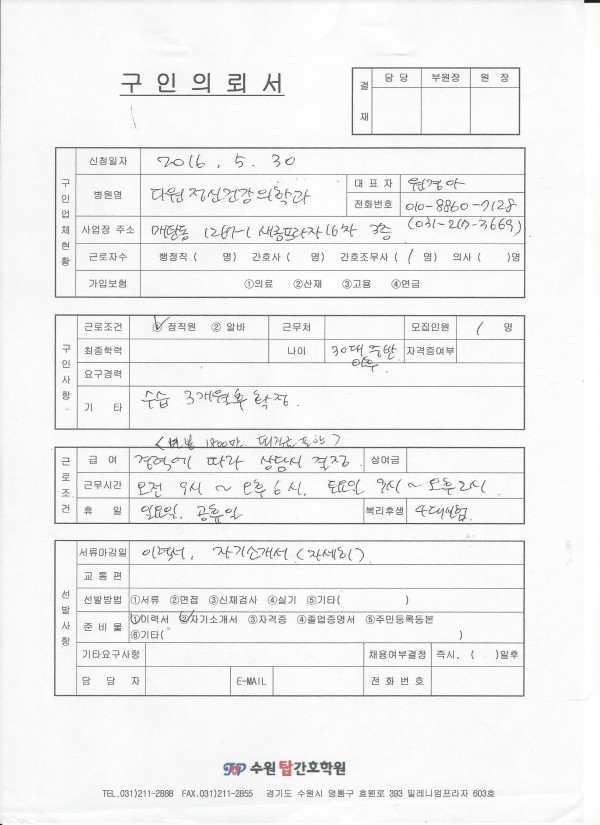 구 인 의 뢰 서
결 재
담 당 부원장 원 장
구인업체현황
신청일자 2016. 5. 30
병원명 다원정신건강의학과
대 표 자 원경아
전화번호 010-8860-7128
(031-217-3669)
사업장 주소 매탄동 1267-1 새롬프라자 3층
근로자수 행정직 ( 명) 간호사 ( 명) 간호조무사 ( 1 명) 의사 ( )명
가입보험 ①의료 ②산재 ③고용 ④연금
구인사항
근로조건 ① 정직원 ② 알바 근무처 모집인원 1 명
최종학력 나이 30대 중반 이후 자격증여부
요구경력
기 타 수습 3개월후 확정.
근로조건
<연봉 1800만. 퇴직금 포함>
급 여 경력에 따라 상담시 결정. 상여금
근무시간 오전 9시 ~ 오후 6시, 토요일 9시 ~ 오후2시.
휴 일 일요일, 공휴일 복리후생 4대보험.
선발사항
서류마감일 이력서, 자기소개서 (자세히)
교 통 편
선발방법 ①서류 ②면접 ③신체검사 ④실기 ⑤기타( )
준 비 물 ①이력서 ②자기소개서 ③자격증 ④졸업증명서 ⑤주민등록등본
⑥기타( )
기타요구사항 채용여부결정 즉시, ( )일후
담 당 자 E-MAIL 전 화 번 호
TOP 수원 탑간호학원
TEL.031)211-2888 FAX.031)211-2855 경기도 수원시 영통구 효원로 393 밀레니엄프라자 603호